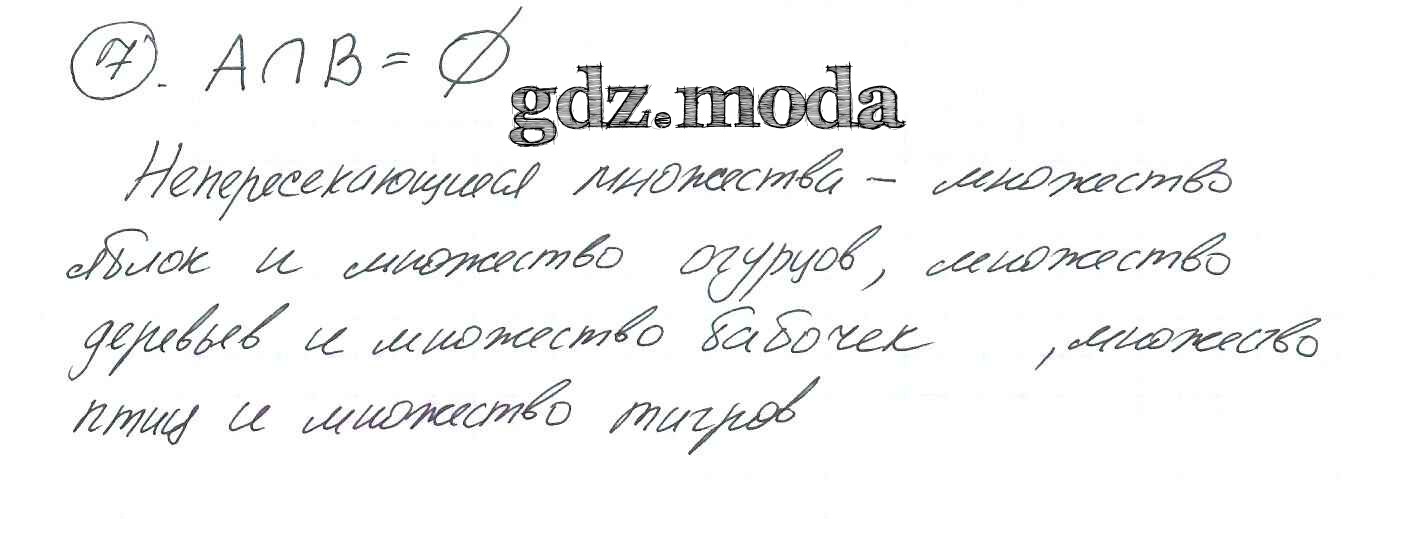 7. A ∩ B = ∅
gdz.moda
Непересекающиеся множества – множество
яблок и множество огурцов, множество
деревьев и множество бабочек , множество
птиц и множество тигров